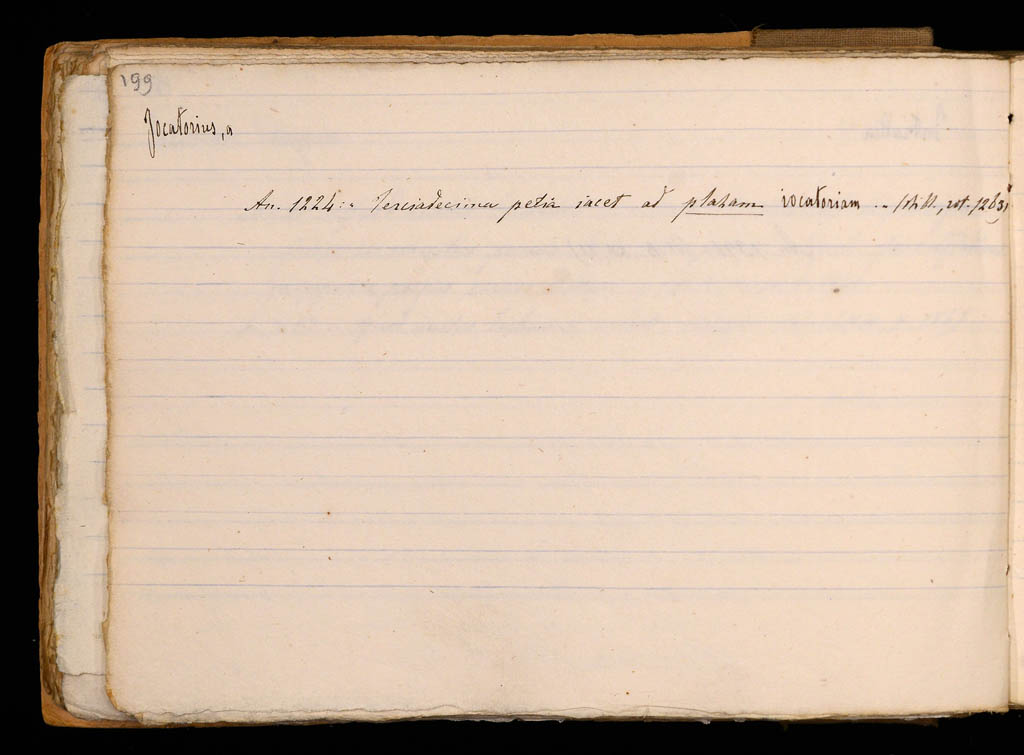 199
Jocatorius, a
An. 1224: " Terciadecima petia iacet ad plaham iocatoriam " (